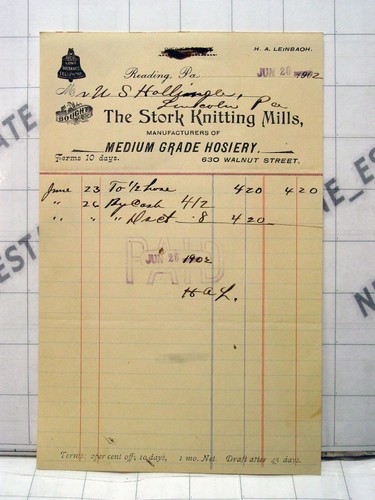 H. A. LEINBACH.
Reading, Pa. JUN 26 1902
Mr U S Hollinger,
Lincoln Pa
BOUGHT OF The Stork Knitting Mills,
MANUFACTURERS OF
MEDIUM GRADE HOSIERY.
Terms 10 days. 630 WALNUT STREET.
June 23 To 1/2 hose 4 20 4 20
" 26 By Cash 4/2
" " " Dsct . 8 4 20
PAID
JUN 26 1902
H A L.
Terms: 2 per cent off, 10 days, 1 mo. Net. Draft after 45 days.